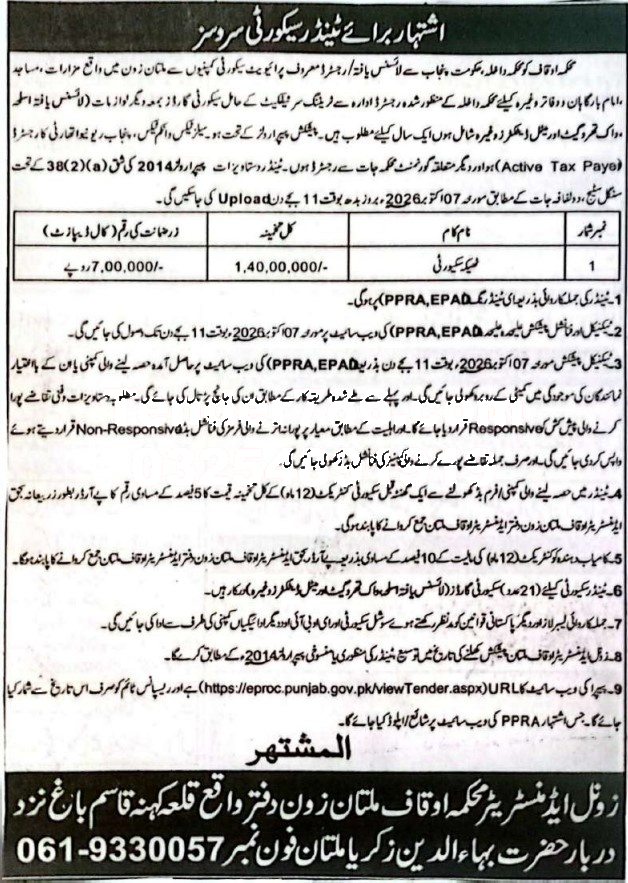 اشتہار برائے ٹینڈر سیکورٹی سروسز
محکمہ اوقاف کو محکمہ داخلہ، حکومت پنجاب سے لائسنس یافتہ/رجسٹرڈ معروف پرائیویٹ سیکورٹی کمپنیوں سے ملتان زون میں واقع مزارات، مساجد
،امام بارگاہان و دفاتر وغیرہ کیلئے محکمہ داخلہ کے منظور شدہ ادارہ سے ٹریننگ سرٹیفکیٹ کے حامل سیکورٹی گارڈز بمعہ دیگر لوازمات (لائسنس یافتہ اسلحہ
،واک تھرو گیٹ اور میٹل ڈیٹکٹرز وغیرہ شامل ہوں ایک سال کیلئے مطلوب ہیں۔ پیشکش پیپرا رولز کے تحت ہو۔ سیلز ٹیکس و انکم ٹیکس، پنجاب ریونیو اتھارٹی کا رجسٹرڈ
(Active Tax Payer) ہو اور دیگر متعلقہ گورنمنٹ محکمہ جات سے رجسٹرڈ ہوں۔ ٹینڈر دستاویزات پیپرا رولز 2014 کی شق (a)(2)38 کے تحت
سنگل سٹیج، دو لفافہ جات کے مطابق مورخہ 07 اکتوبر 2026ء بروز بدھ بوقت 11 بجے دن Upload کی جاسکیں گی۔
نمبر شمار نام کام کل تخمینہ زر ضمانت کی رقم (کال ڈیپازٹ)
1 ٹھیکہ سیکورٹی 1,40,00,000/- 7,00,000/- روپے
1۔ٹینڈر کی جملہ کاروائی بذریعہ ای ٹینڈرنگ (PPRA,EPAD) پر ہوگی۔
2۔ٹیکنیکل اور فنانشل پیشکش علیحدہ علیحدہ (PPRA,EPAD) کی ویب سائیٹ پر مورخہ 07 اکتوبر 2026ء بوقت 11 بجے دن تک وصول کی جائیں گی۔
3۔ٹیکنیکل پیشکش مورخہ 07 اکتوبر 2026ء بوقت 11 بجے دن بذریعہ (PPRA,EPAD) کی ویب سائیٹ پر حاصل آمدہ حصہ لینے والی کمپنی یا ان کے بااختیار
نمائندگان کی موجودگی میں کمیٹی کے روبرو کھولی جائیں گی۔ اور پہلے سے طے شدہ طریقہ کار کے مطابق ان کی جانچ پڑتال کی جائے گی۔ مطلوبہ دستاویزات و فنی تقاضے پورا
کرنے والی پیش کش کو Responsive قرار دیا جائے گا۔ اور اہلیت کے مطابق معیار پر پورا نہ اترنے والی فرمز کی فنانشل بڈ Non-Responsive قرار دیتے ہوئے
واپس کر دی جائیں گی۔ اور صرف جملہ تقاضے پورے کرنے والی کمپنیز کی فنانشل بڈ کھولی جائیں گی۔
4۔ٹینڈر میں حصہ لینے والی کمپنی/فرم بڈ کھولنے سے ایک گھنٹہ قبل سیکورٹی کنٹریکٹ (12 ماہ) کے کل تخمینہ قیمت کا 5 فیصد کے مساوی رقم کا پے آرڈر بطور زر بیعانہ بحق
ایڈمنسٹریٹر اوقاف ملتان زون دفتر ایڈمنسٹریٹر اوقاف ملتان جمع کروانے کا پابند ہوگی۔
5۔کامیاب دہندہ کو کنٹریکٹ (12 ماہ) کی مالیت کے 10 فیصد کے مساوی بذریعہ پے آرڈر بحق ایڈمنسٹریٹر اوقاف ملتان زون دفتر ایڈمنسٹریٹر اوقاف ملتان جمع کروانے کا پابند ہوگا۔
6۔ٹینڈر سیکورٹی کیلئے (21 عدد) سیکورٹی گارڈز (لائسنس یافتہ اسلحہ، واک تھرو گیٹ اور میٹل ڈیٹکٹرز وغیرہ) درکار ہیں۔
7۔جملہ کاروائی لیبر لاز اور دیگر پاکستانی قوانین کو مدنظر رکھتے ہوئے سوشل سیکورٹی اور ای او بی آئی اور دیگر ادائیگیاں کمپنی کی طرف سے ادا کی جائیں گی۔
8۔زونل ایڈمنسٹریٹر اوقاف ملتان پیشکش کھلنے کی تاریخ میں توسیع ٹینڈر کی منظوری یا منسوخی پیپرا رولز 2014ء کے مطابق کرے گا۔
9۔پیپرا کی ویب سائیٹ کا URL (https://eproc.punjab.gov.pk/viewTender.aspx) ہے اور ریسپانس ٹائم کو صرف اس تاریخ سے شمار کیا
جائے گا۔ جس اشتہار PPRA کی ویب سائیٹ پر شائع/اپلوڈ کیا جائے گا۔
المشتہر
زونل ایڈمنسٹریٹر محکمہ اوقاف ملتان زون دفتر واقع قلعہ کہنہ قاسم باغ نزد
دربار حضرت بہاءالدین زکریا ملتان فون نمبر 061-9330057